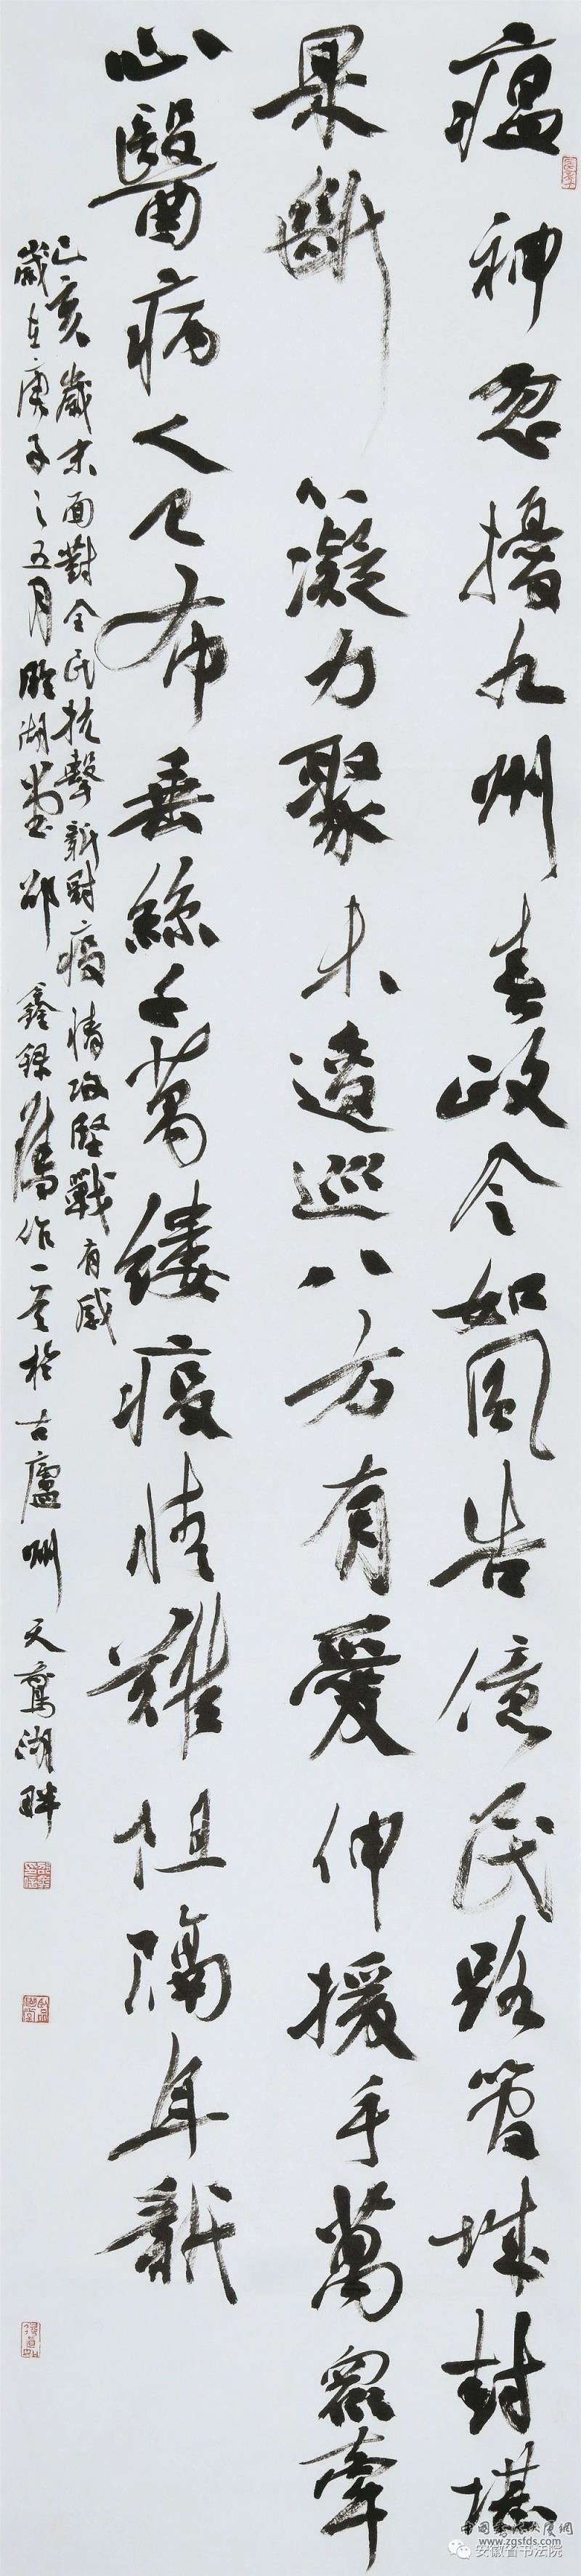 瘟神忽擾九州春政令如風告億民路管城封堪
果斷凝力聚未逡巡八方有愛伸援手萬眾牽
心醫病人已布垂絲千萬縷疫情難阻隔年新
己亥歲末面對全民抗擊新冠疫情攻堅戰有感
歲在庚子之五月 湖堂 邵 鑫錄舊作一首於古廬州天鵝湖畔
中國書法大廈網
www.zgsfds.com
安徽省书法院